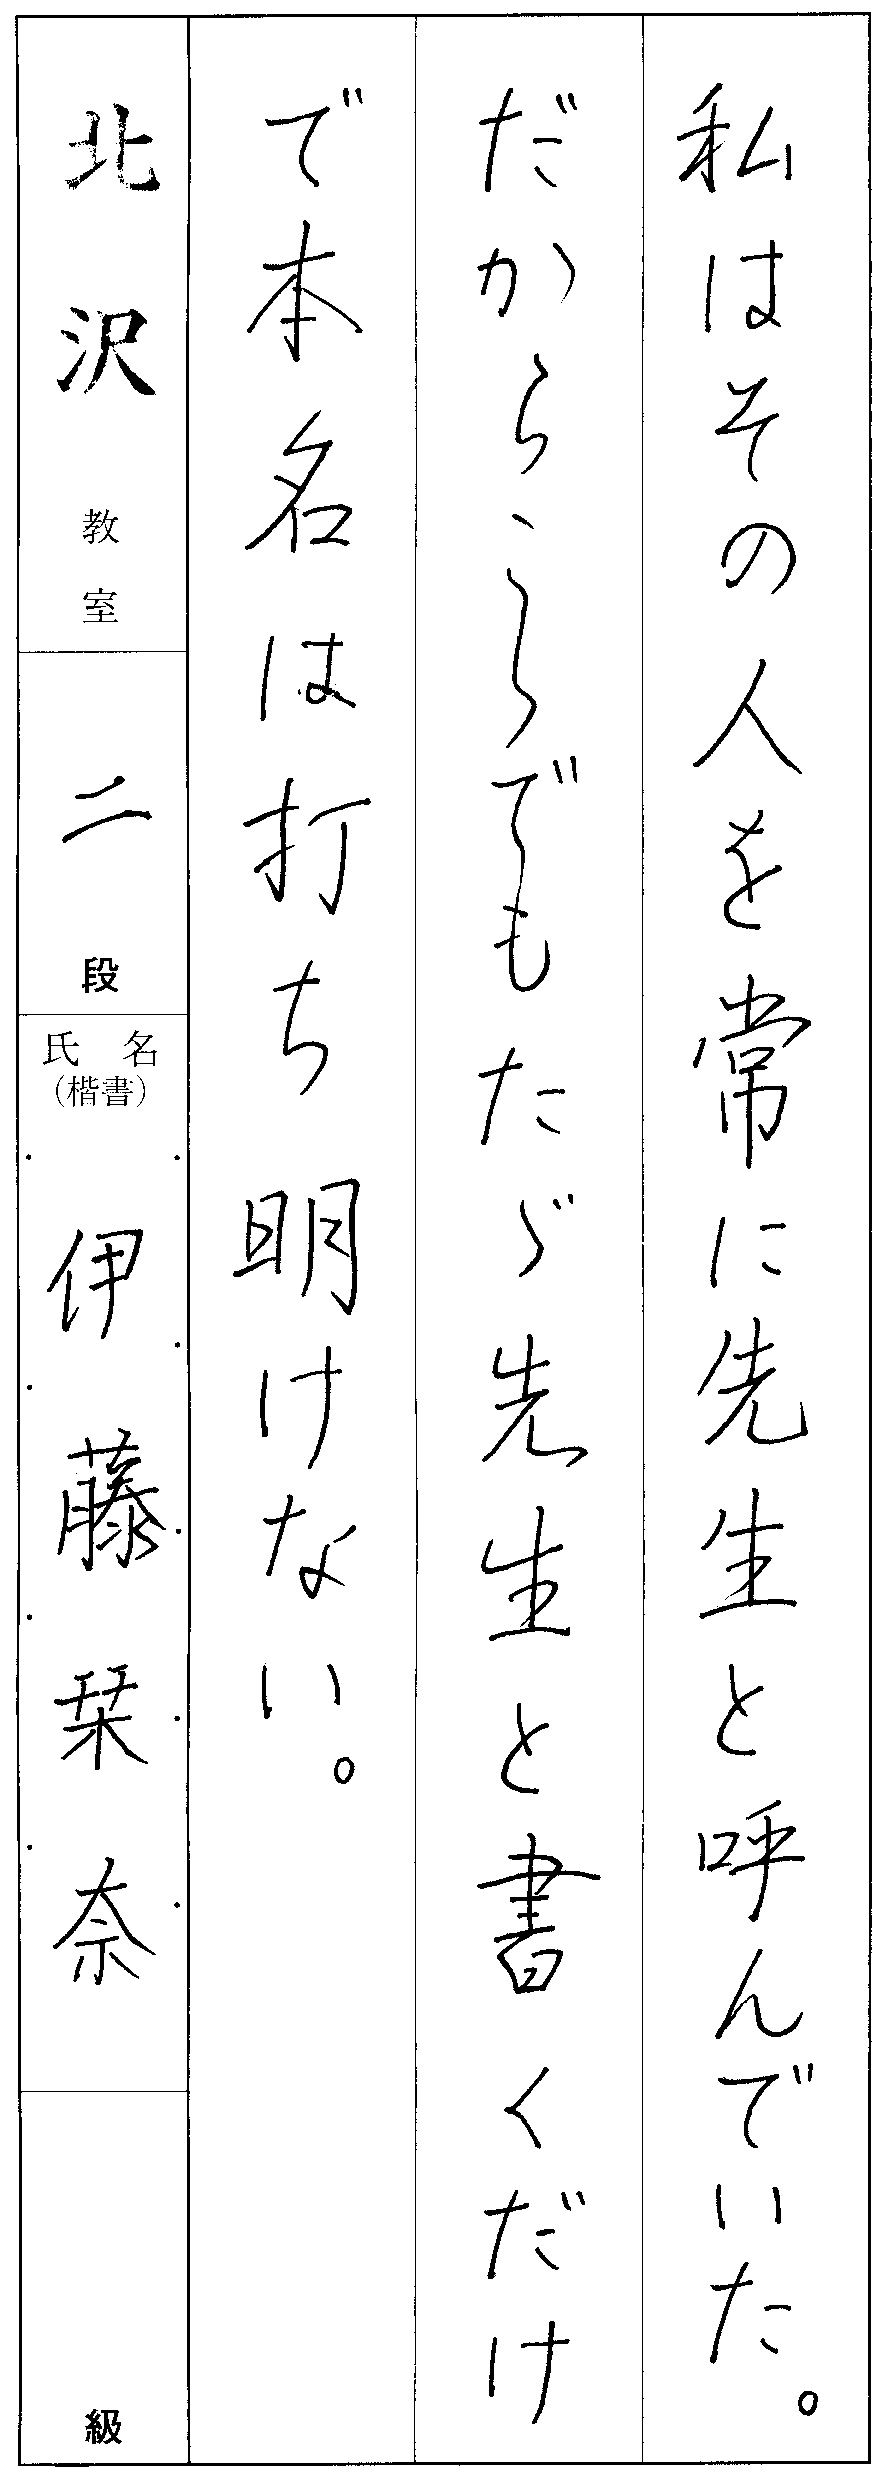 私はその人を常に先生と呼んでいた。
だから、こゝでもたゞ先生と書くだけ
で本名は打ち明けない。
北沢教室
二段
氏名
(楷書)
伊藤栞奈
級